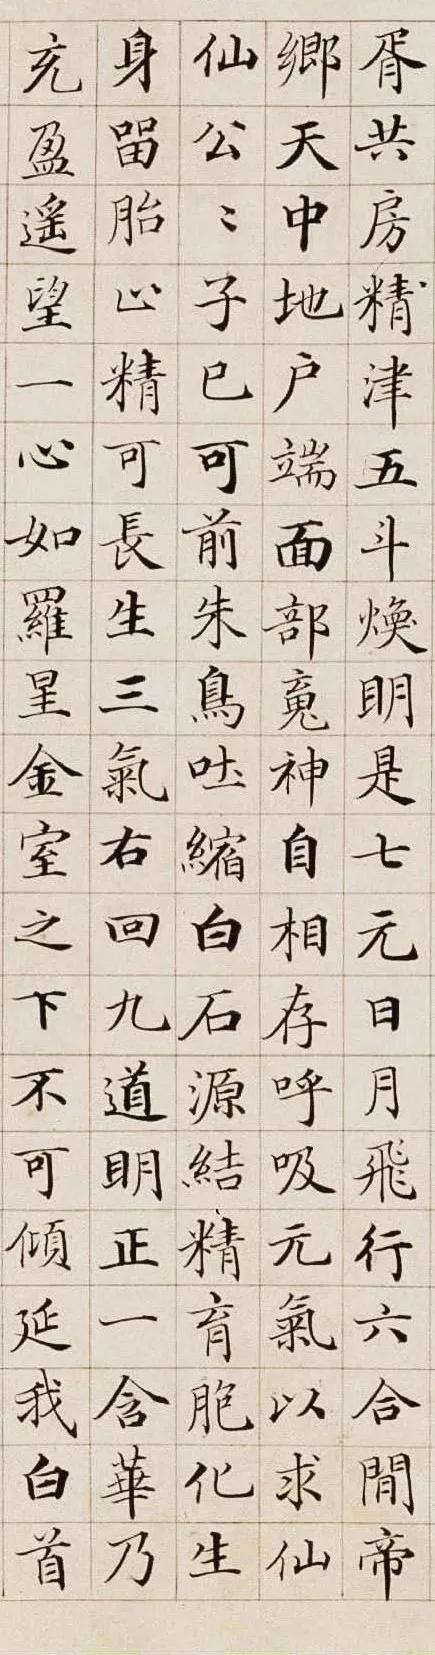 胥共房精津五斗煥明是七元日月飛行六合閒帝
鄉天中地户端面部䰟神自相存呼吸元氣以求仙
仙公〻子已可前朱鳥吐縮白石源結精育胞化生
身留胎止精可長生三氣右回九道明正一含華乃
充盈遙望一心如羅星金室之下不可傾延我白首